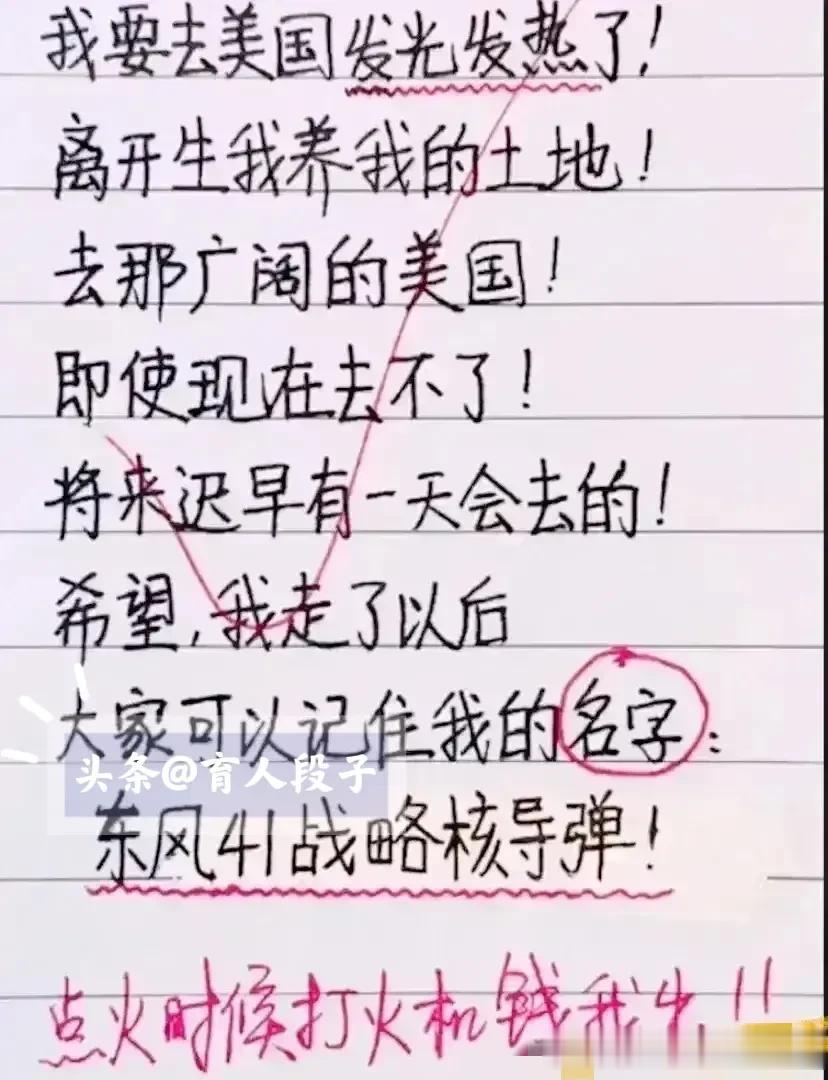 我要去美国发光发热了!
离开生我养我的土地!
去那广阔的美国!
即使现在去不了!
将来迟早有一天会去的!
希望,我走了以后
大家可以记住我的名字:
头条@育人段子
东风41战略核导弹!
点火时候打火机钱我出!!